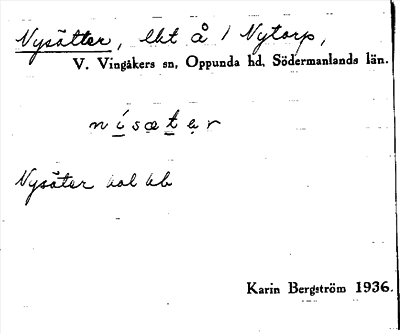 Nysätter, lht å 1 Nytorp,
V. Vingåkers sn, Oppunda hd, Södermanlands län.
nísætẹr
Nysäter hb
Karin Bergström 1936.